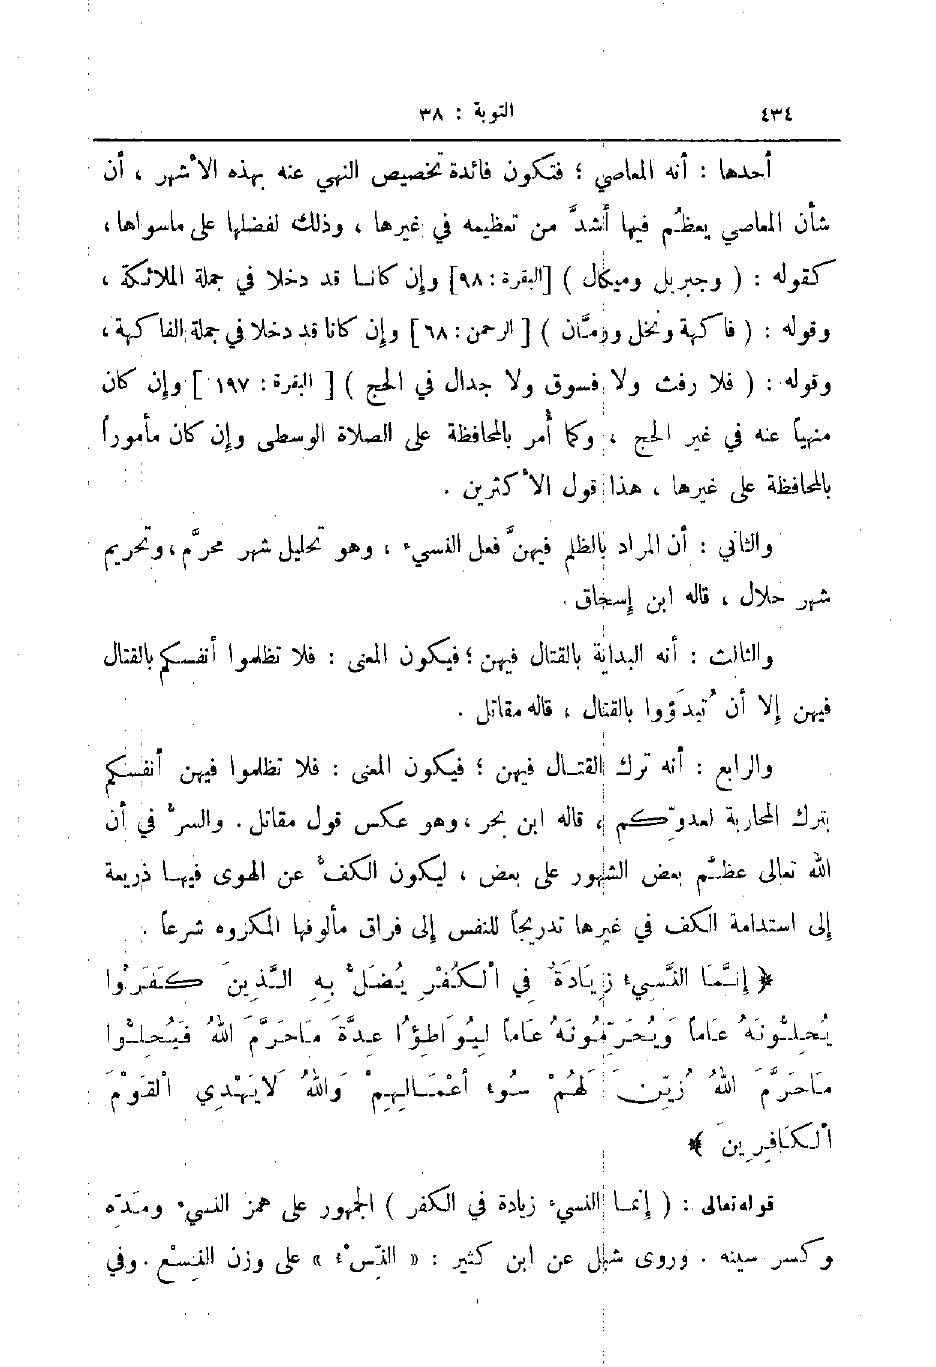 ٤٣٤ التوبة : ٣٨
أحدها : أنه المعاصي ؛ فتكون فائدة تخصيص النهي عنه بهذه الأشهر ، أن
شأن المعاصي يعظُم فيها أشدَّ من تعظيمه في غيرها ، وذلك لفضلها على ماسواها ،
كقوله : ( وجبريل وميكال ) [البقرة : ٩٨] وإن كانا قد دخلا في جملة الملائكة ،
وقوله : ( فاكهة ونخل ورمَّان ) [ الرحمن : ٦٨] وإن كانا قد دخلا في جملة الفاكهة ،
وقوله : ( فلا رفث ولا فسوق ولا جدال في الحج ) [ البقرة : ١٩٧ ] وإن كان
منهياً عنه في غير الحج ، وكما أُمر بالمحافظة على الصلاة الوسطى وإن كان مأموراً
بالمحافظة على غيرها ، هذا قول الأكثرين .
والثاني : أن المراد بالظلم فيهنَّ فعل النسيء ، وهو تحليل شهر محرَّم ، وتحريم
شهر حلال ، قاله ابن إسحاق .
والثالث : أنه البداية بالقتال فيهن ؛ فيكون المعنى : فلا تظلموا أنفسكم بالقتال
فيهن إلا أن تُبدَؤوا بالقتال ، قاله مقاتل .
والرابع : أنه ترك القتال فيهن ؛ فيكون المعنى : فلا تظلموا فيهن أنفسكم
بترك المحاربة لعدوِّكم ، قاله ابن بحر ، وهو عكس قول مقاتل . والسرُّ في أن
الله تعالى عظَّم بعض الشهور على بعض ، ليكون الكفُّ عن الهوى فيها ذريعة
إلى استدامة الكف في غيرها تدريجاً للنفس إلى فراق مألوفها المكروه شرعاً .
﴿ إِنَّمَا النَّسِيءُ زِيَادَةٌ فِي الْكُفْرِ يُضَلُّ بِهِ الَّذِينَ كَفَرُوا
يُحِلُّونَهُ عَاماً وَيُحَرِّمُونَهُ عَاماً لِيُوَاطِؤُا عِدَّةَ مَاحَرَّمَ اللهُ فَيُحِلُّوا
مَاحَرَّمَ اللهُ زُيِّنَ لَهُمْ سُوءُ أَعْمَالِهِمْ وَاللهُ لَايَهْدِي الْقَوْمَ
الْكَافِرِينَ ﴾
قوله تعالى : ( إنما النسيء زيادة في الكفر ) الجمهور على همز النسيء ومَدّه
وكسر سينه . وروى شبل عن ابن كثير : « النَّسْء » على وزن النَّسْع . وفي